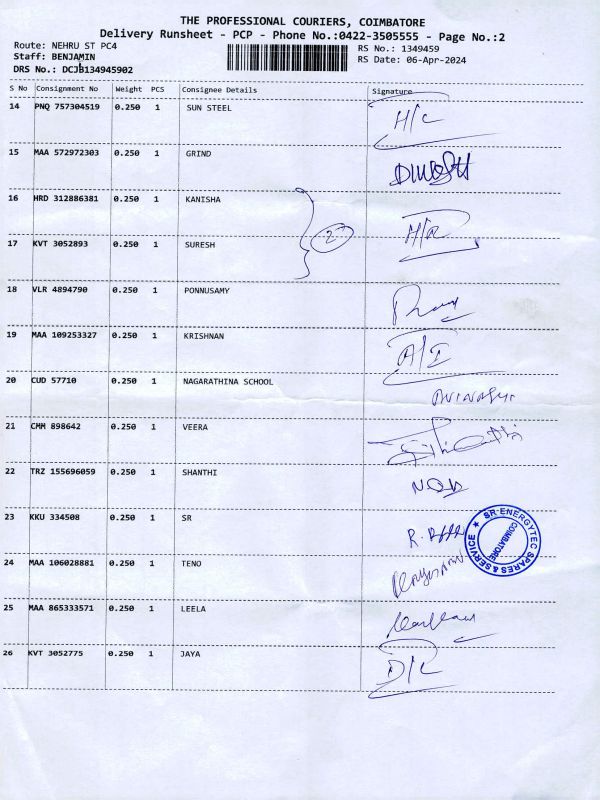 THE PROFESSIONAL COURIERS, COIMBATORE
Delivery Runsheet - PCP - Phone No.:0422-3505555 - Page No.:2
Route: NEHRU ST PC4
RS No.: 1349459
Staff: BENJAMIN
RS Date: 06-Apr-2024
DRS No.: DCJB134945902
S No Consignment No Weight PCS Consignee Details Signature
14 PNQ 757304519 0.250 1 SUN STEEL H/C
15 MAA 572972303 0.250 1 GRIND
16 HRD 312886381 0.250 1 KANISHA
2
17 KVT 3052893 0.250 1 SURESH
18 VLR 4894790 0.250 1 PONNUSAMY
19 MAA 109253327 0.250 1 KRISHNAN
20 CUD 57710 0.250 1 NAGARATHINA SCHOOL
21 CMM 898642 0.250 1 VEERA
22 TRZ 155696059 0.250 1 SHANTHI
23 KKU 334508 0.250 1 SR
SR ENERGYTEC SPARES & SERVICE ★
COIMBATORE
24 MAA 106028881 0.250 1 TENO
25 MAA 865333571 0.250 1 LEELA
26 KVT 3052775 0.250 1 JAYA